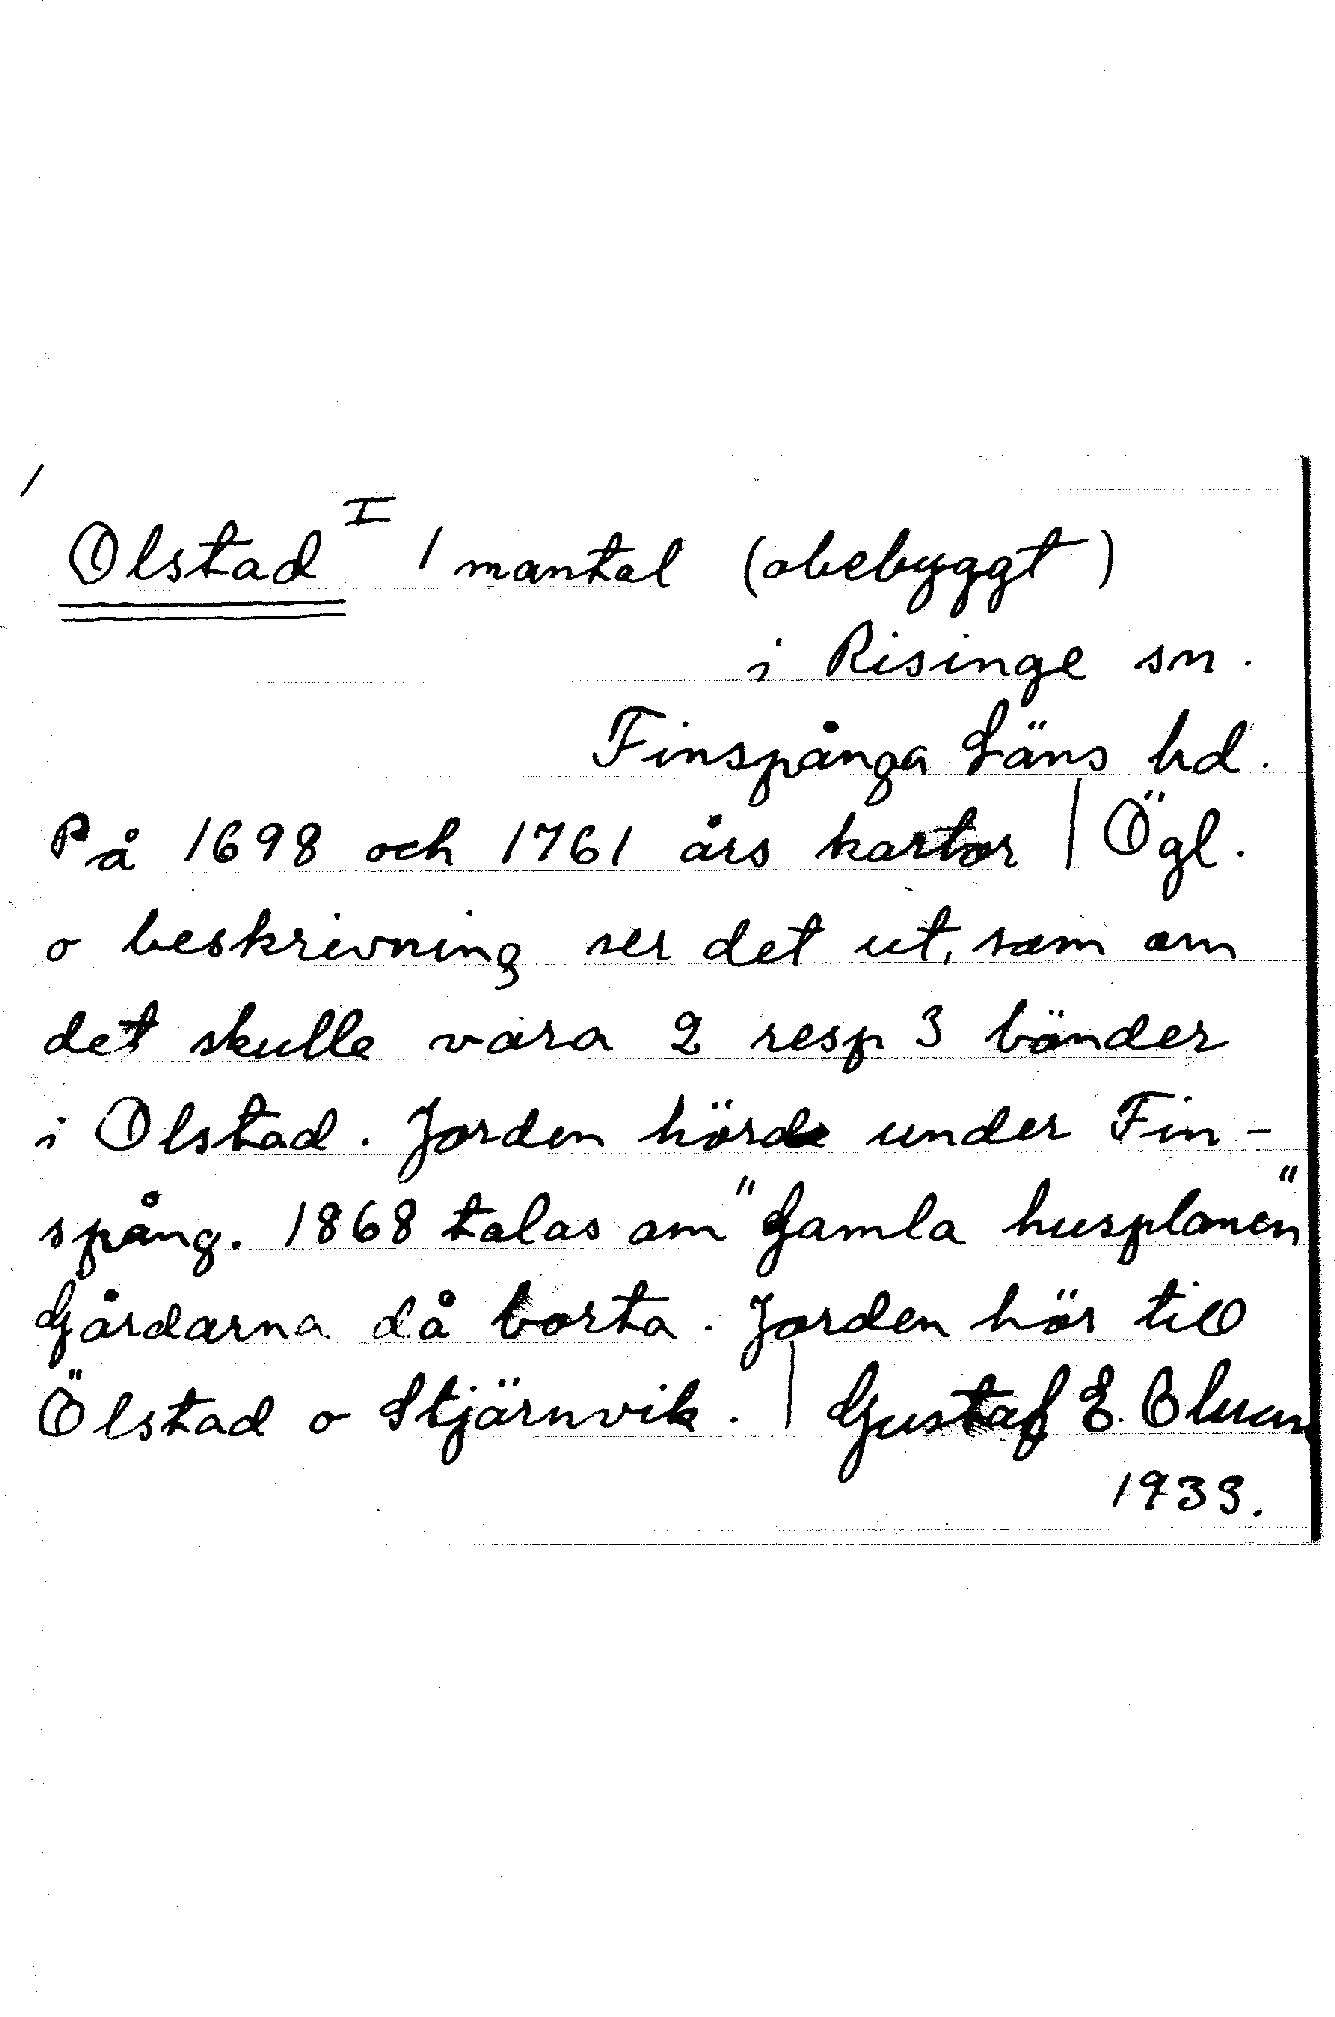 Olstad I 1 mantal (obebyggt)
i Risinge sn.
Finspånga Läns hd.
På 1698 och 1761 års kartor | Ögl.
o beskrivning ser det ut, som om
det skulle vara 2 resp 3 bönder
i Olstad. Jorden hörde under Fin-
spång. 1868 talas om "Gamla husplanen"
Gårdarna då borta. Jorden hör till
Ölstad o Stjärnvik. | Gustaf E.
1933.